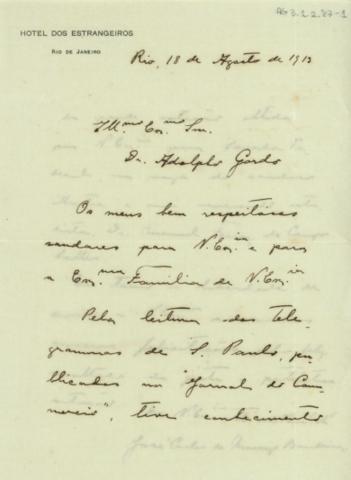 AG 3.1.2.87-1
HOTEL DOS ESTRANGEIROS
RIO DE JANEIRO
Rio, 18 de Agosto de 1913
Ill.mo Ex.mo Snr.
Dr. Adolpho Gordo
Os meus bem respeitosos
saudares para V. Ex.ia e para
a Ex.ma Familia de V. Ex.ia
Pela leitura dos tele-
grammas de S. Paulo, pu-
blicados no "Jornal do Com-
mercio", tive conhecimento